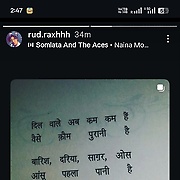 2:47
rud.raxhhh 34m
Somlata And The Aces • Naina Mo...
दिल वाले अब कम कम हैं
वैसे क़ौम पुरानी है
बारिश, दरिया, साग़र, ओस
आंसू पहला पानी है